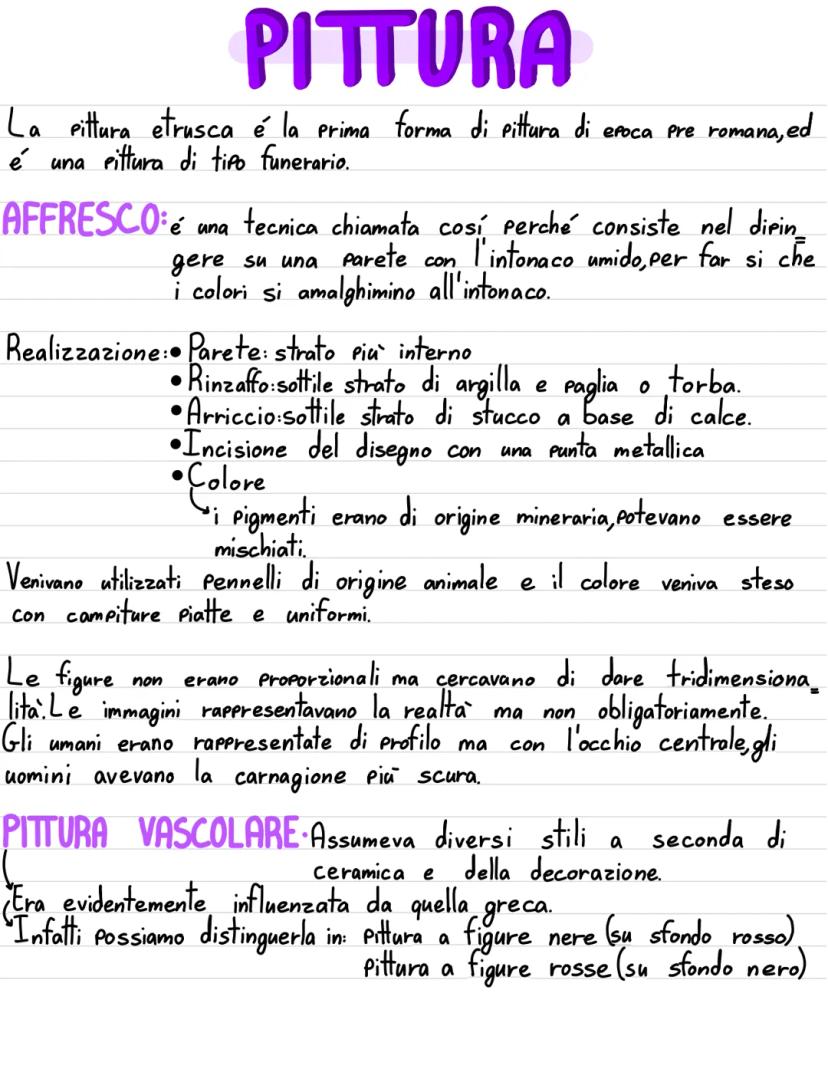 PITTURA
La pittura etrusca é la prima forma di pittura di epoca pre romana, ed
é una pittura di tipo funerario.
AFFRESCO: é una tecnica chiamata cosí perché consiste nel dipin_
gere su una parete con l'intonaco umido, per far si che
i colori si amalghimino all'intonaco.
Realizzazione: • Parete: strato più interno
• Rinzaffo: sottile strato di argilla e paglia o torba.
• Arriccio: sottile strato di stucco a base di calce.
• Incisione del disegno con una punta metallica
• Colore
i pigmenti erano di origine mineraria, potevano essere
mischiati.
Venivano utilizzati pennelli di origine animale e il colore veniva steso
con campiture piatte e uniformi.
Le figure non erano proporzionali ma cercavano di dare tridimensiona_
lità. Le immagini rappresentavano la realtà ma non obligatoriamente.
Gli umani erano rappresentate di profilo ma con l'occhio centrale, gli
uomini avevano la carnagione più scura.
PITTURA VASCOLARE • Assumeva diversi stili a seconda di
ceramica e della decorazione.
Era evidentemente influenzata da quella greca.
Infatti possiamo distinguerla in: pittura a figure nere (su sfondo rosso)
pittura a figure rosse (su sfondo nero)